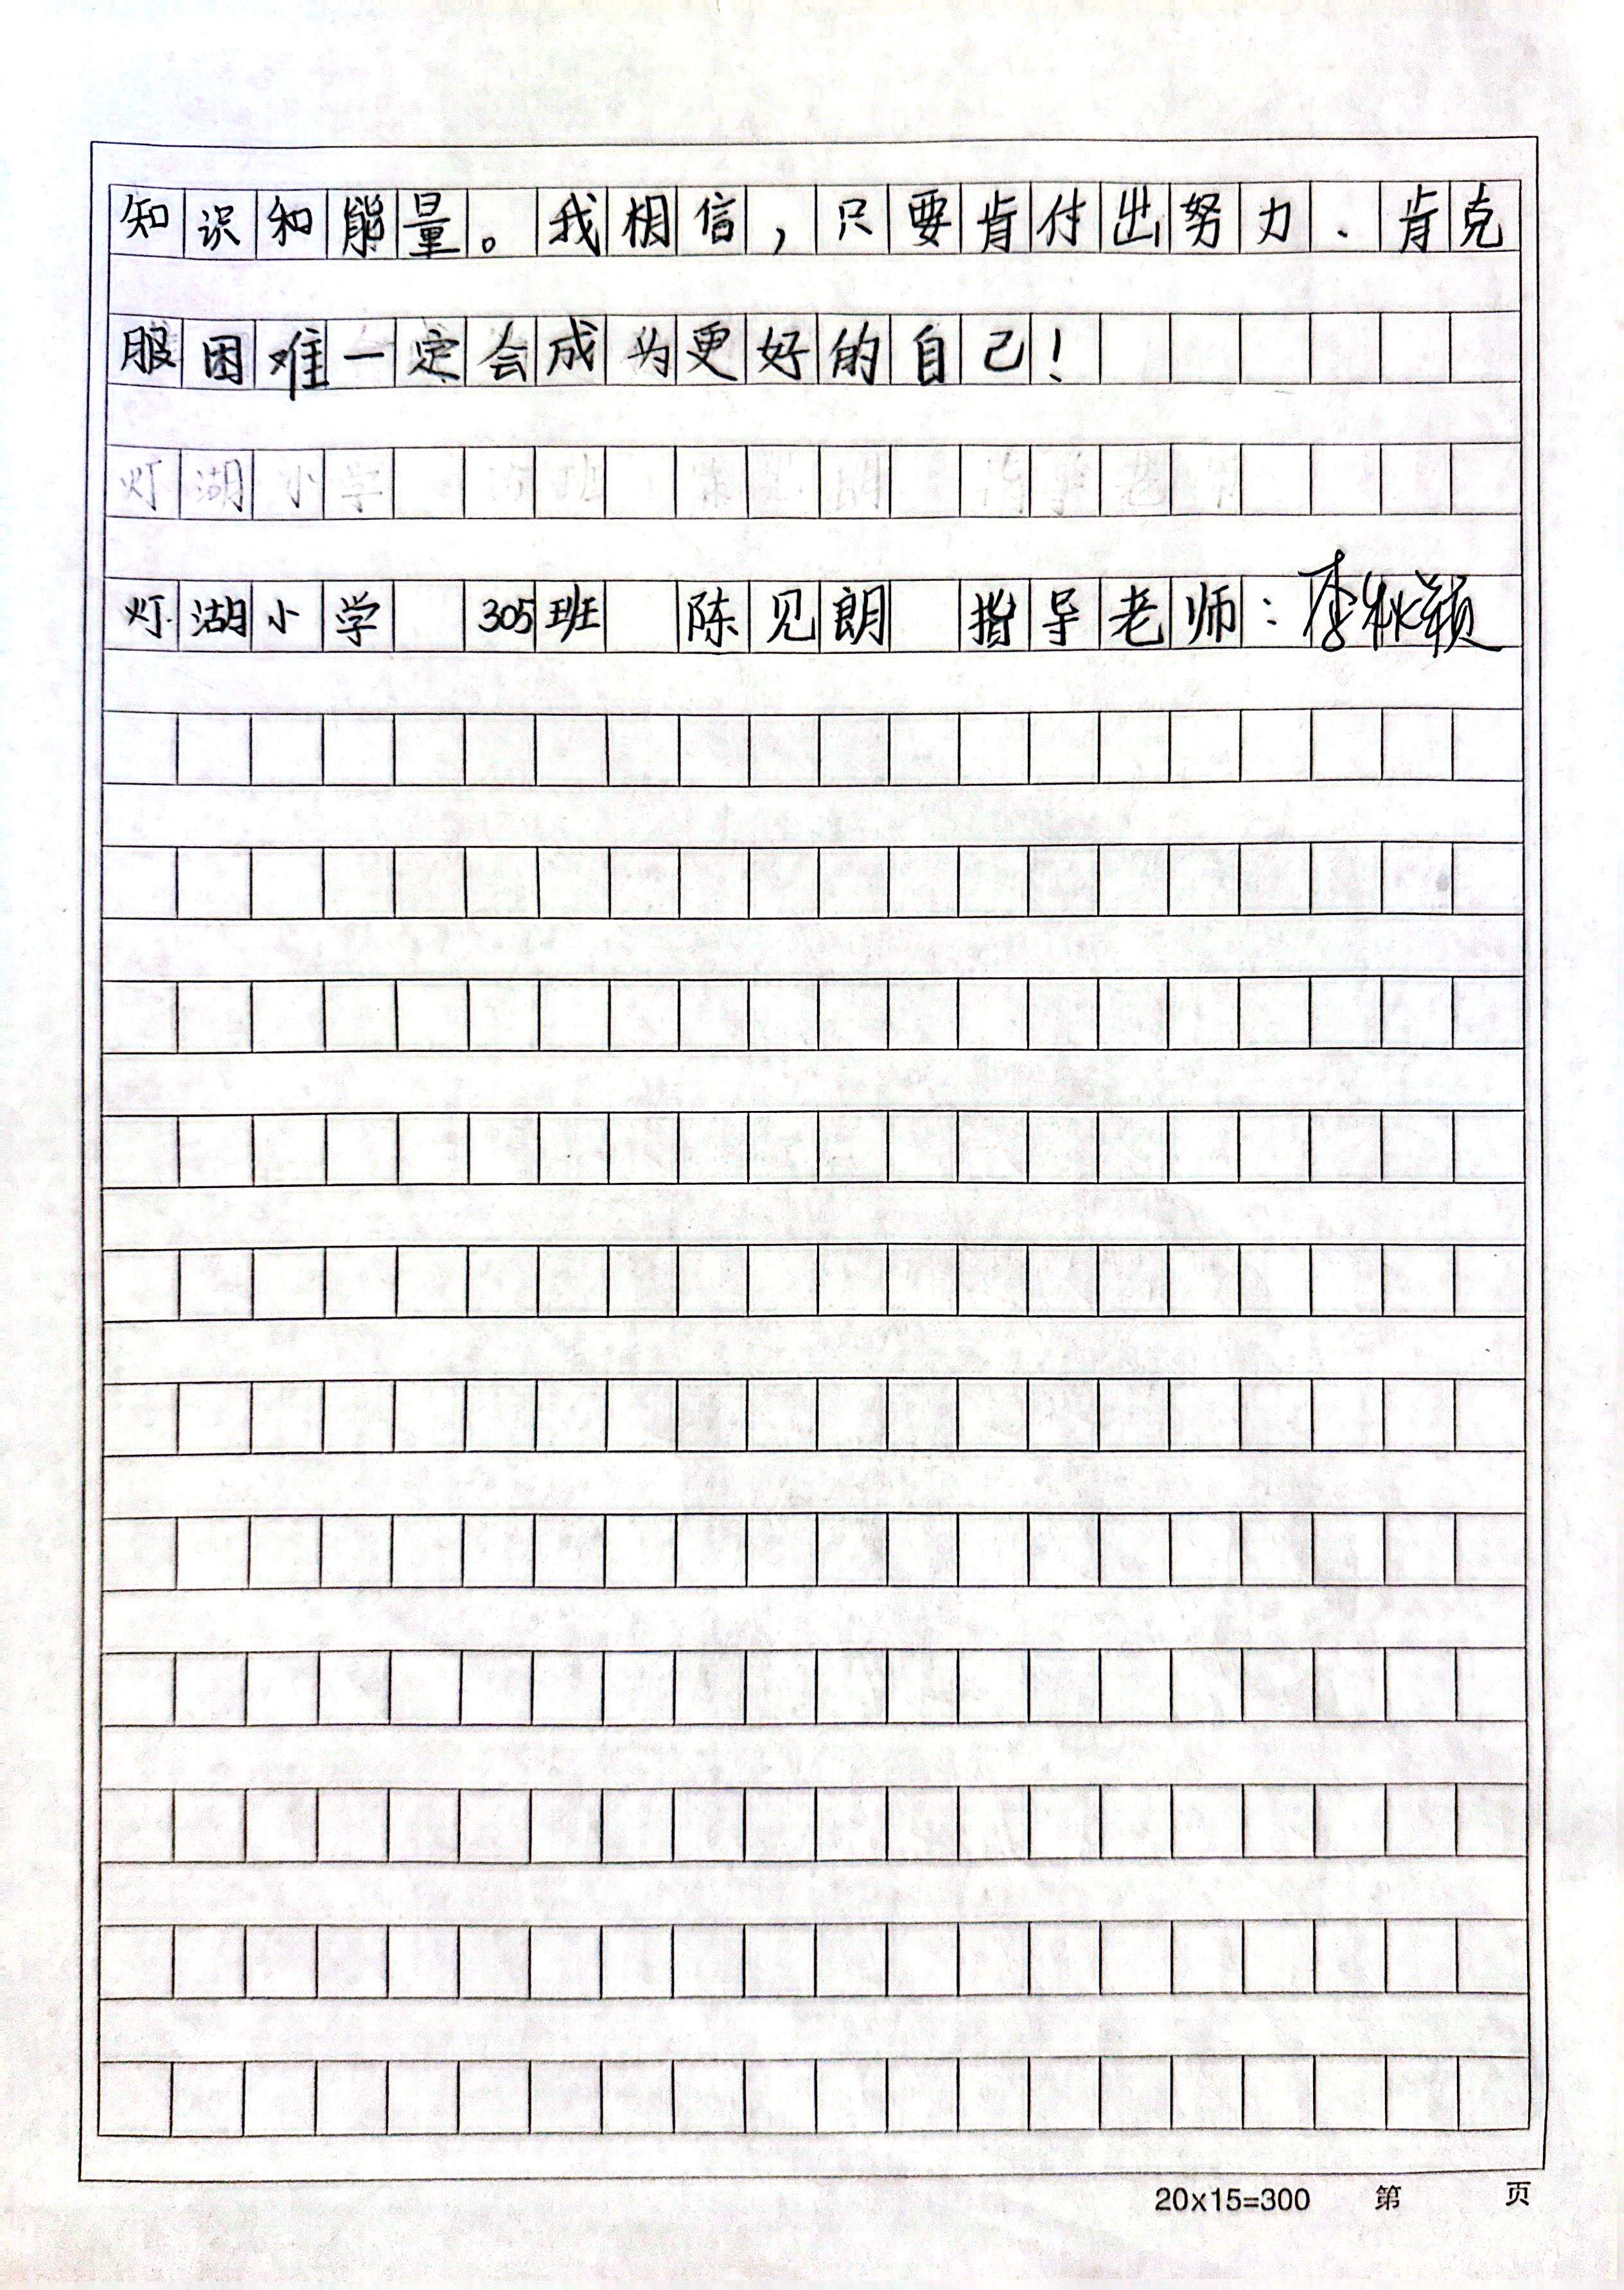 知识和能量。我相信,只要肯付出努力、肯克
服困难一定会成为更好的自己!
灯湖小学
灯湖小学 305班 陈见朗 指导老师:李秋颖
20×15=300 第 页